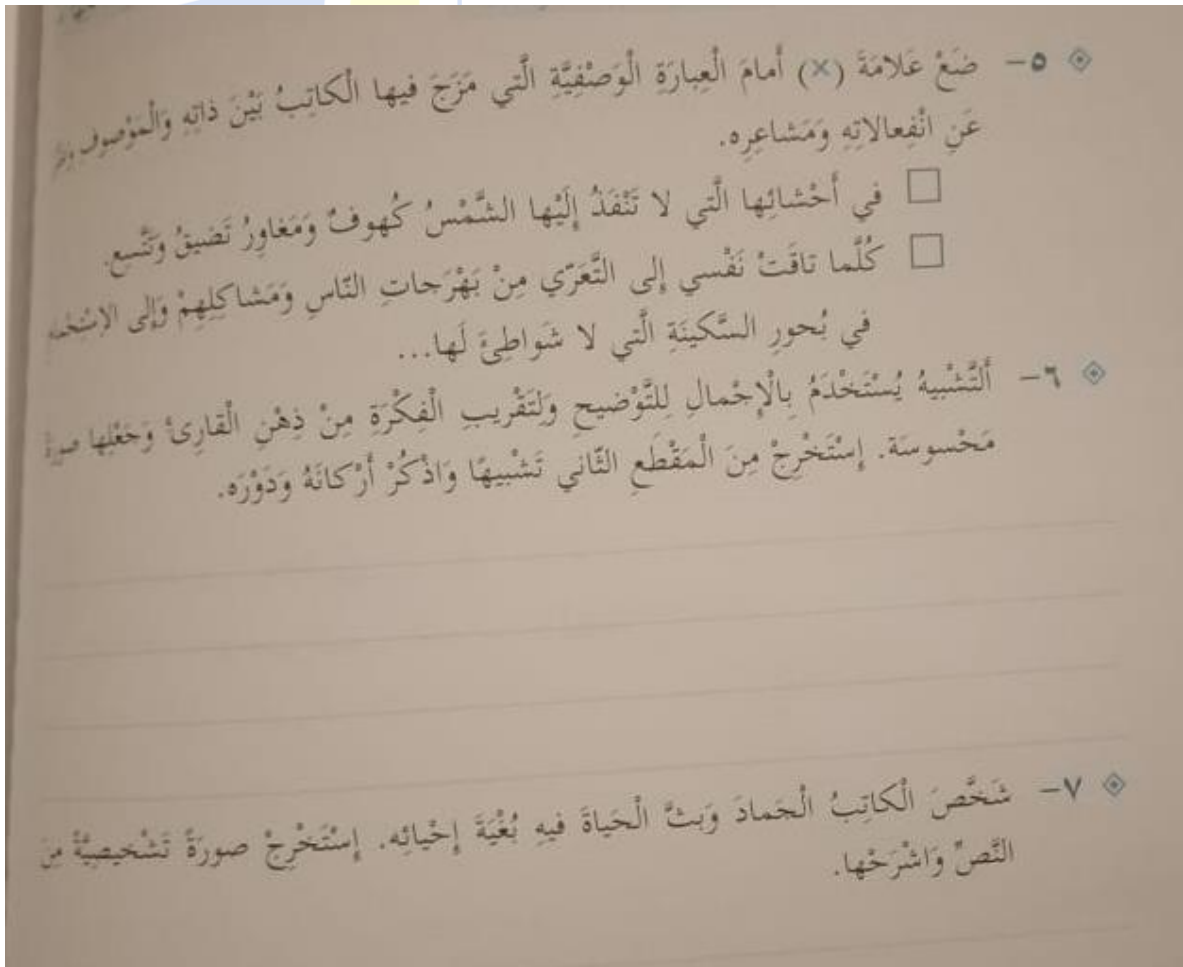 ٥- ضَعْ عَلامَةَ (×) أَمامَ الْعِبارَةِ الْوَصْفِيَّةِ الَّتي مَزَجَ فيها الْكاتِبُ بَيْنَ ذاتِهِ وَالْمَوْصوفِ
عَنِ انْفِعالاتِهِ وَمَشاعِرِه.
في أَحْشائِها الَّتي لا تَنْفَذُ إِلَيْها الشَّمْسُ كُهوفٌ وَمَغاوِرُ تَضيقُ وَتَتَّسِع.
كُلَّما تاقَتْ نَفْسي إِلى التَّعَرّي مِنْ بَهْرَجاتِ النّاسِ وَمَشاكِلِهِمْ وَإِلى
في بُحورِ السَّكينَةِ الَّتي لا شَواطِئَ لَها...
٦- أَلتَّشْبيهُ يُسْتَخْدَمُ بِالْإِجْمالِ لِلتَّوْضيحِ وَلِتَقْريبِ الْفِكْرَةِ مِنْ ذِهْنِ الْقارِئ وَجَعْلِها صورَةً
مَحْسوسَة. إِسْتَخْرِجْ مِنَ الْمَقْطَعِ الثّاني تَشْبيهًا وَاذْكُرْ أَرْكانَهُ وَدَوْرَه.
٧- شَخَّصَ الْكاتِبُ الْجَمادَ وَبَثَّ الْحَياةَ فيهِ بُغْيَةَ إِحْيائِه. إِسْتَخْرِجْ صورَةً تَشْخيصِيَّةً مِنَ
النَّصِّ وَاشْرَحْها.